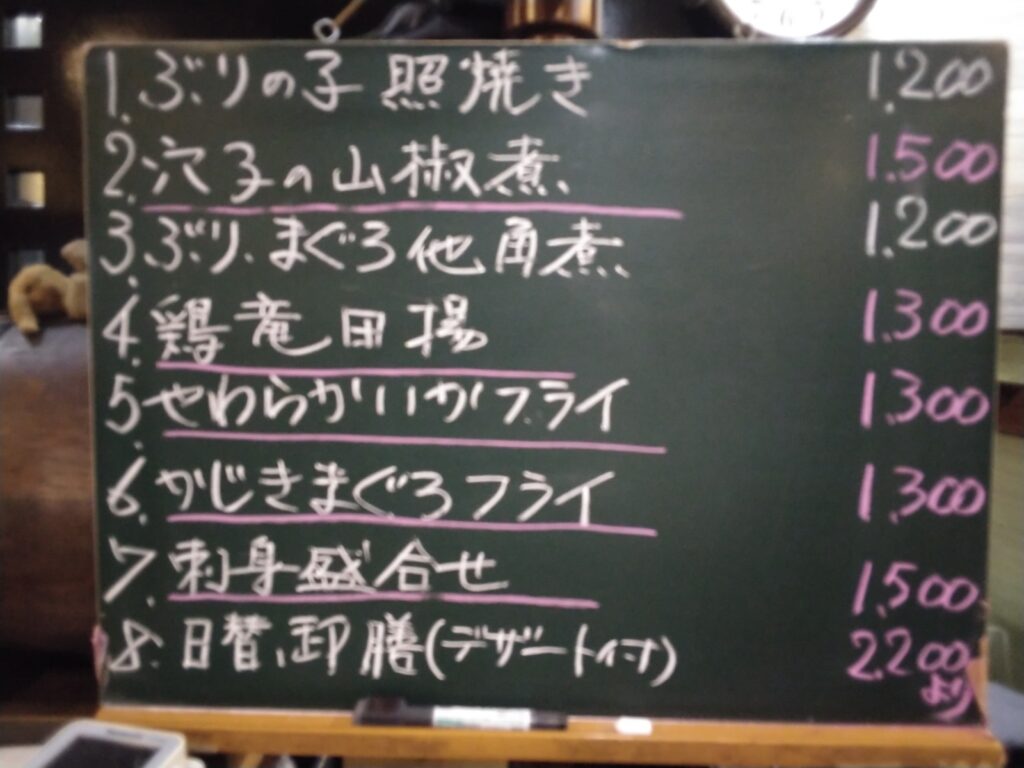 1. ぶりの子 照焼き 1.200
2. 穴子の山椒煮 1.500
3. ぶり、まぐろ他角煮 1.200
4. 鶏竜田揚 1.300
5. やわらかいかフライ 1.300
6. かじきまぐろフライ 1.300
7. 刺身盛合せ 1.500
8. 日替、御膳(デザート付) 2.200
より